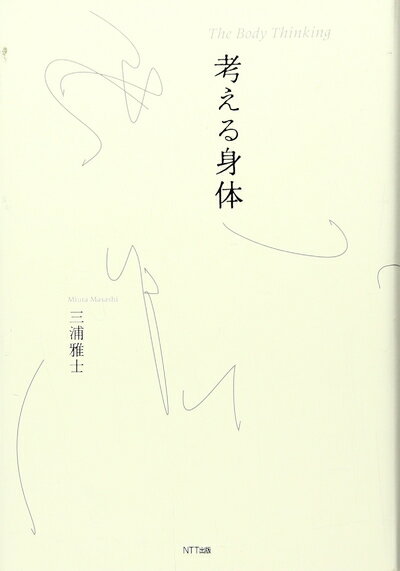 The Body Thinking
考える身体
Miura Masashi
三浦雅士
NTT出版